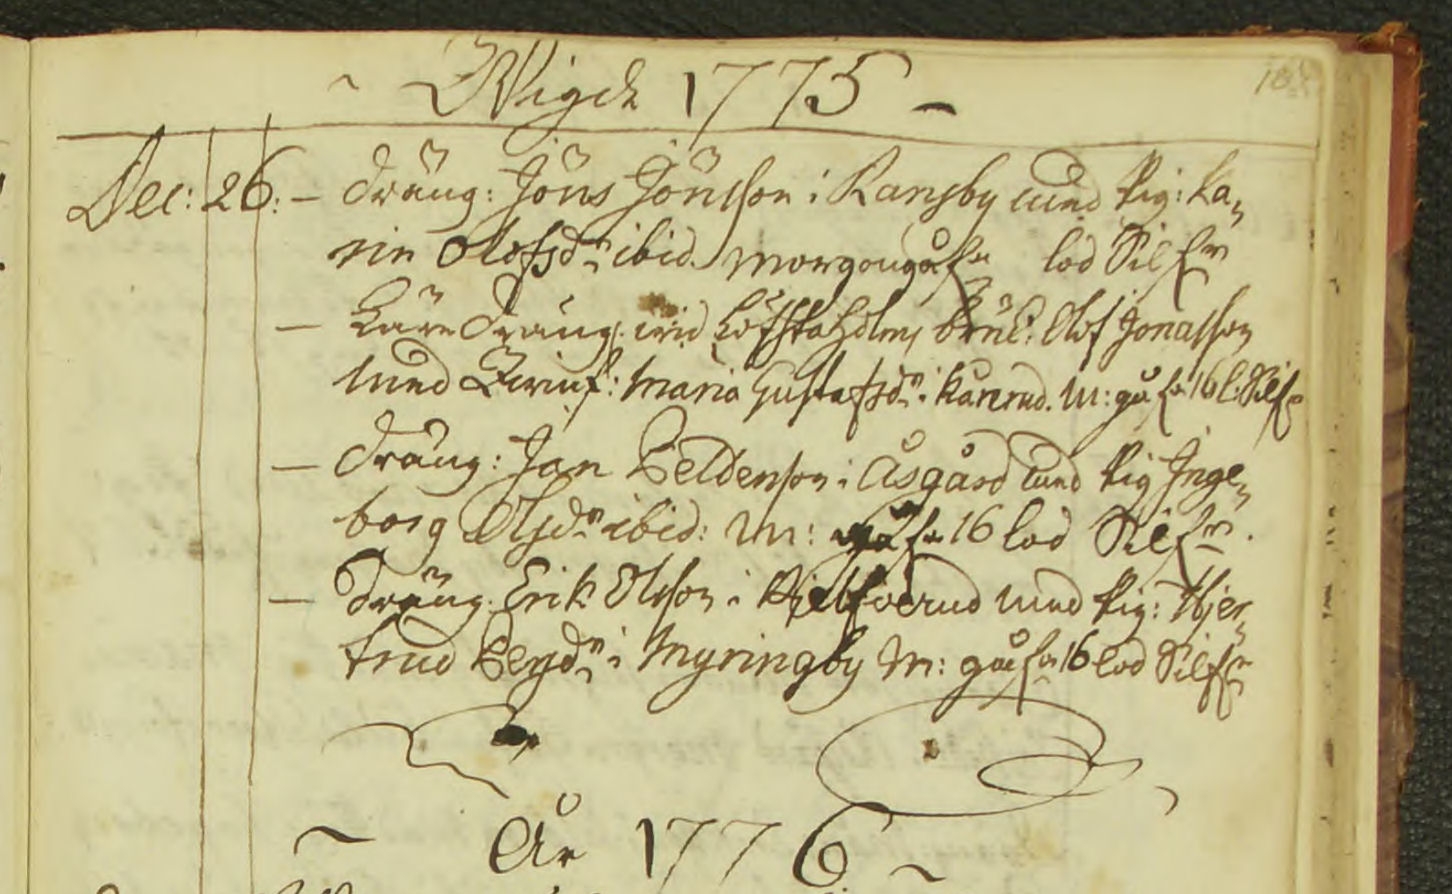 ~ Wigde 1775 –
Dec: 26. – Dräng: Jöns Jönsson i Ransby med Pig: Ka,,
rin Olofsdr ibid. morgongåfa lod Silfr
– Läredräng. wid Löfstaholm, Bruk: Olof Jonasson
med Maria Gustafsdr i Kånrud. M: gåfa 16 l. Silfr
– Dräng: Jan Beldenson i Åsgård med Pig Inge,,
borg Olsdr ibid: M: gåfa 16 lod Silfr.
– Dräng. Erik Olsson i med Pig: Hjer,,
trud Bengdr i Myringby M: gåfa 16 lod Silfr
~ År 1776 ~